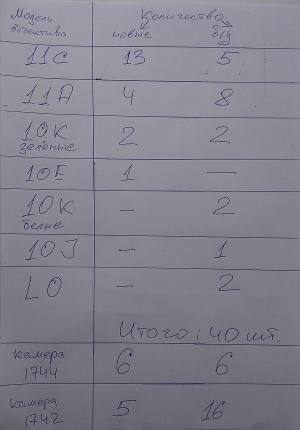 Модель объектива Количество
новые б/у
11С 13 5
11А 4 8
10К зеленые 2 2
10Е 1 —
10К белые – 2
10J – 1
LO – 2
Итого: 40 шт.
камера 1744 6 6
камера 1742 5 16